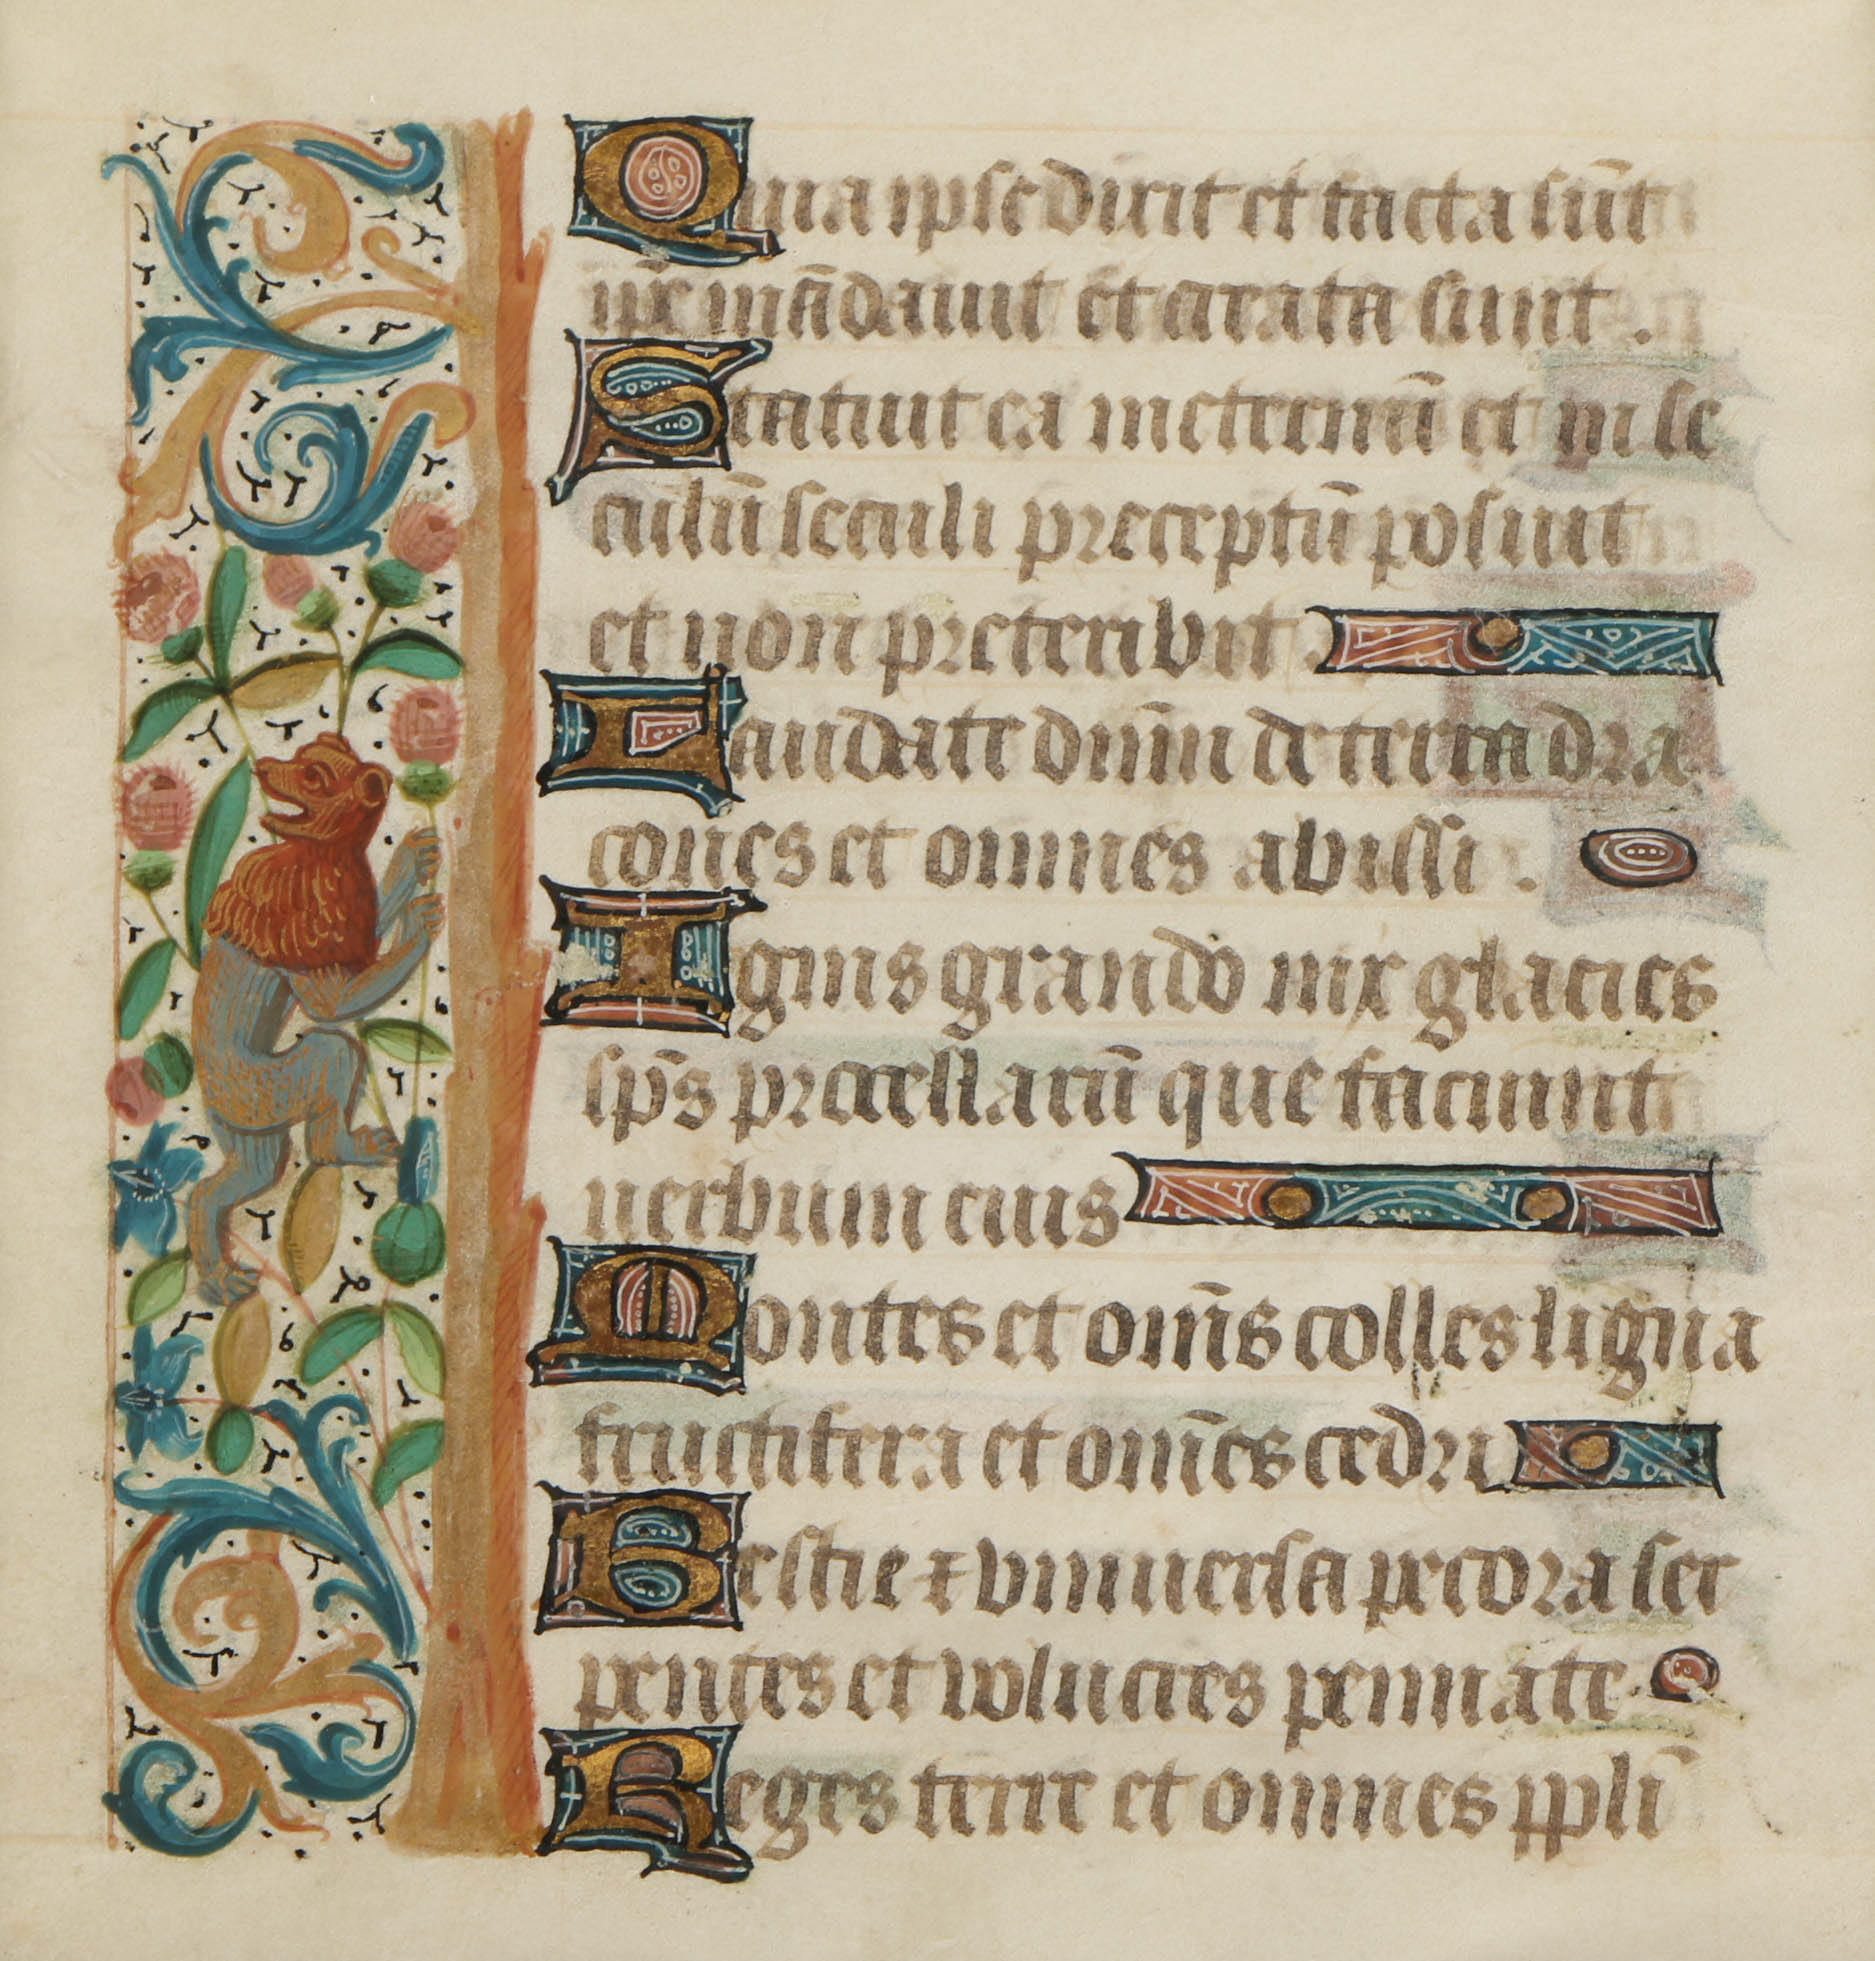 Quia ipse dixit et facta sūt
ip̄e mādauit et creata sunt .
Statuit ea ineternū et in se
culū seculi preceptū posuit
et non preteribit .
Laudate dn̄m de terra dra
cones et omnes abissi .
Ignis grando nix glacies
sp̄s procellarū que faciunt
uerbum eius
Montes et om̄s colles ligna
fructifera et om̄es cedri
Bestie ⁊ vniuersa pecora ser
pentes et volucres pennate
Reges terre et omnes ppl̄i